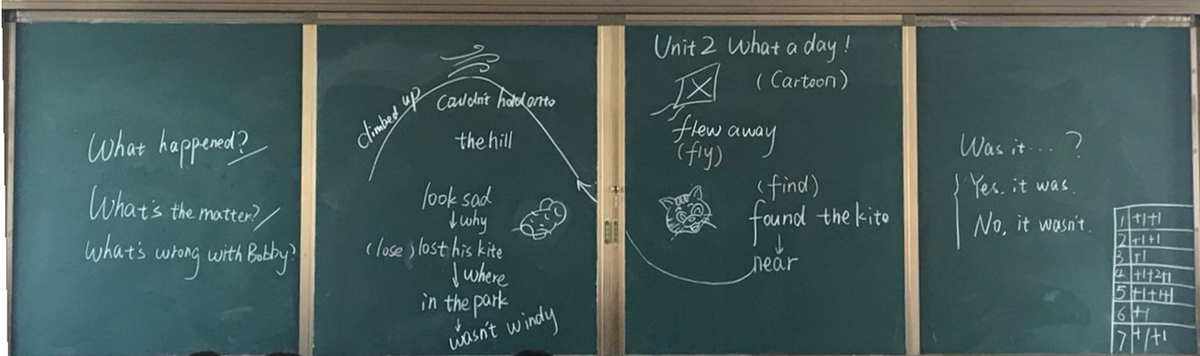 What happened?
What's the matter?
What's wrong with Bobby?
climbed up
Couldn't hold onto
the hill
look sad
why
(lose) lost his kite
where
in the park
wasn't windy
Unit 2 What a day!
(Cartoon)
flew away
(fly)
(find)
found the kite
near
Was it... ?
Yes. it was.
No, it wasn't.
1 +1+1
2 +1+1
3 +1
4 +1+2+1
5 +1+1+1
6 +1
7 +1+1